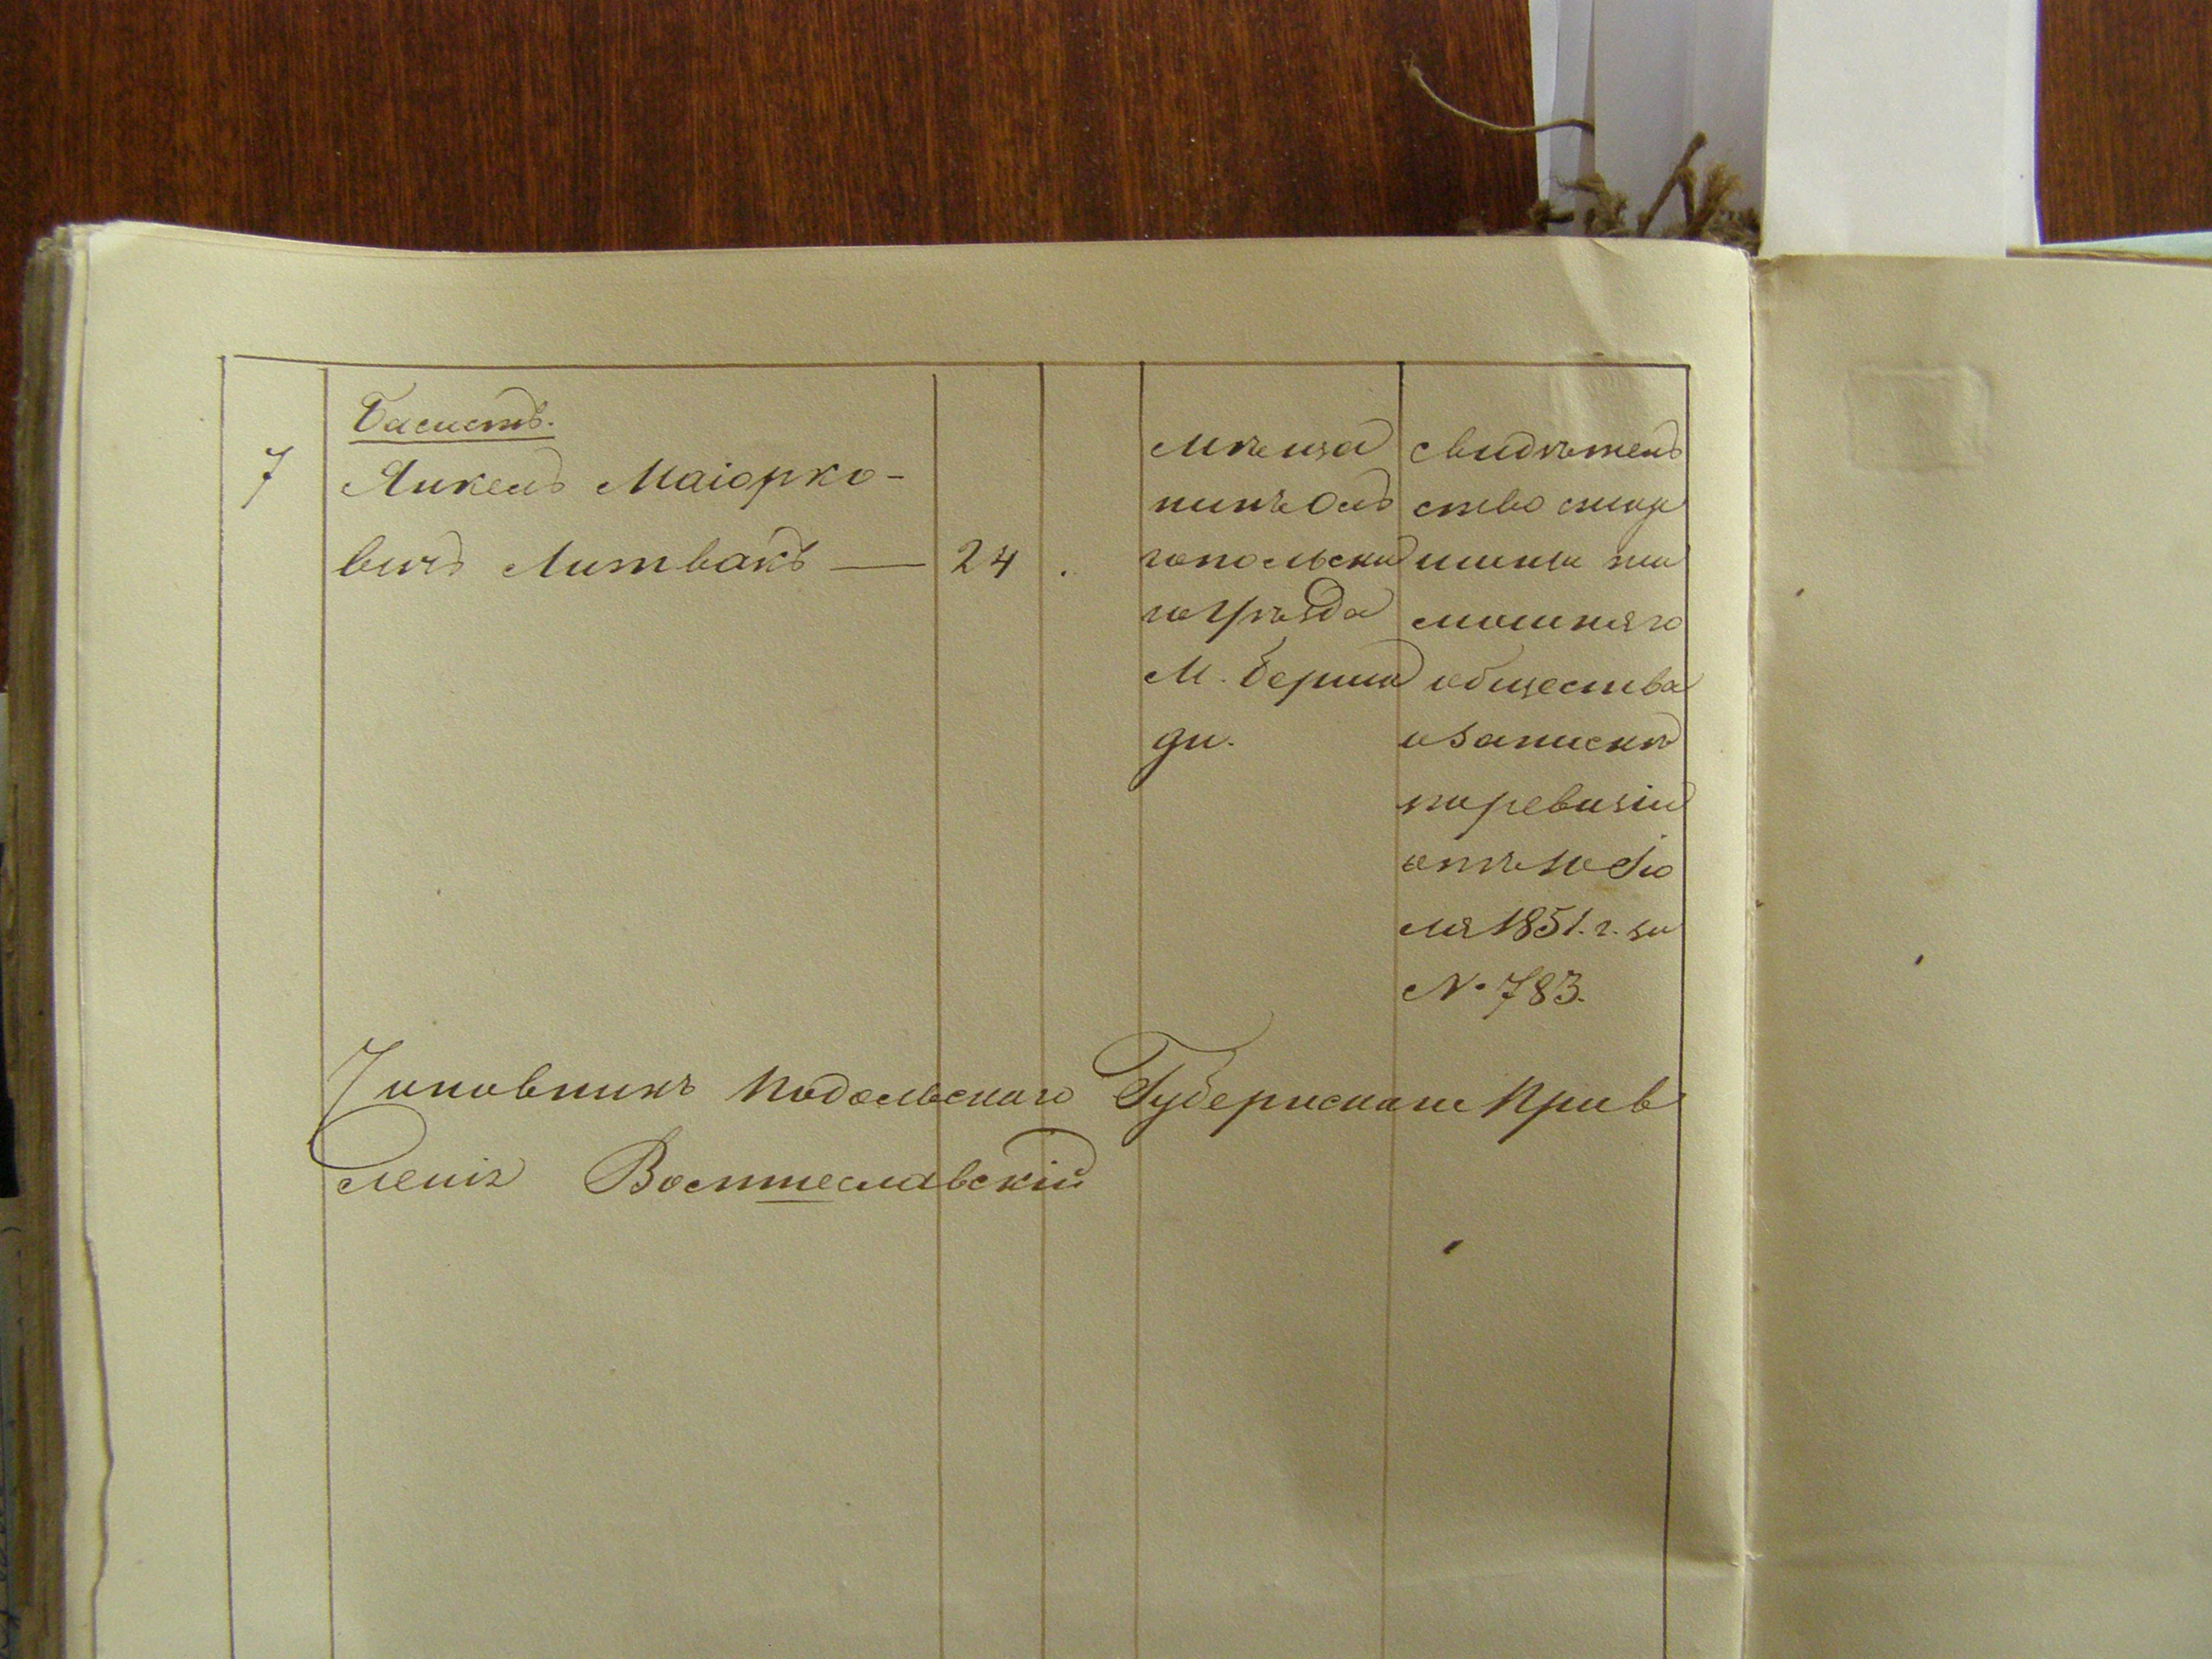 Басистъ.
7 Янкель Маіорко-
вичъ Литвакъ — 24
мѣща
нинъ Оль
гопольска
го уѣзда
М. Берша
ди.
свидѣтель
ство
мошняго
общества
о запискѣ
по ревизіи
отъ 10 Ію
ля 1851. г. за
№ 783.
Чиновникъ Подольскаго Губернскаго Прав
ленія